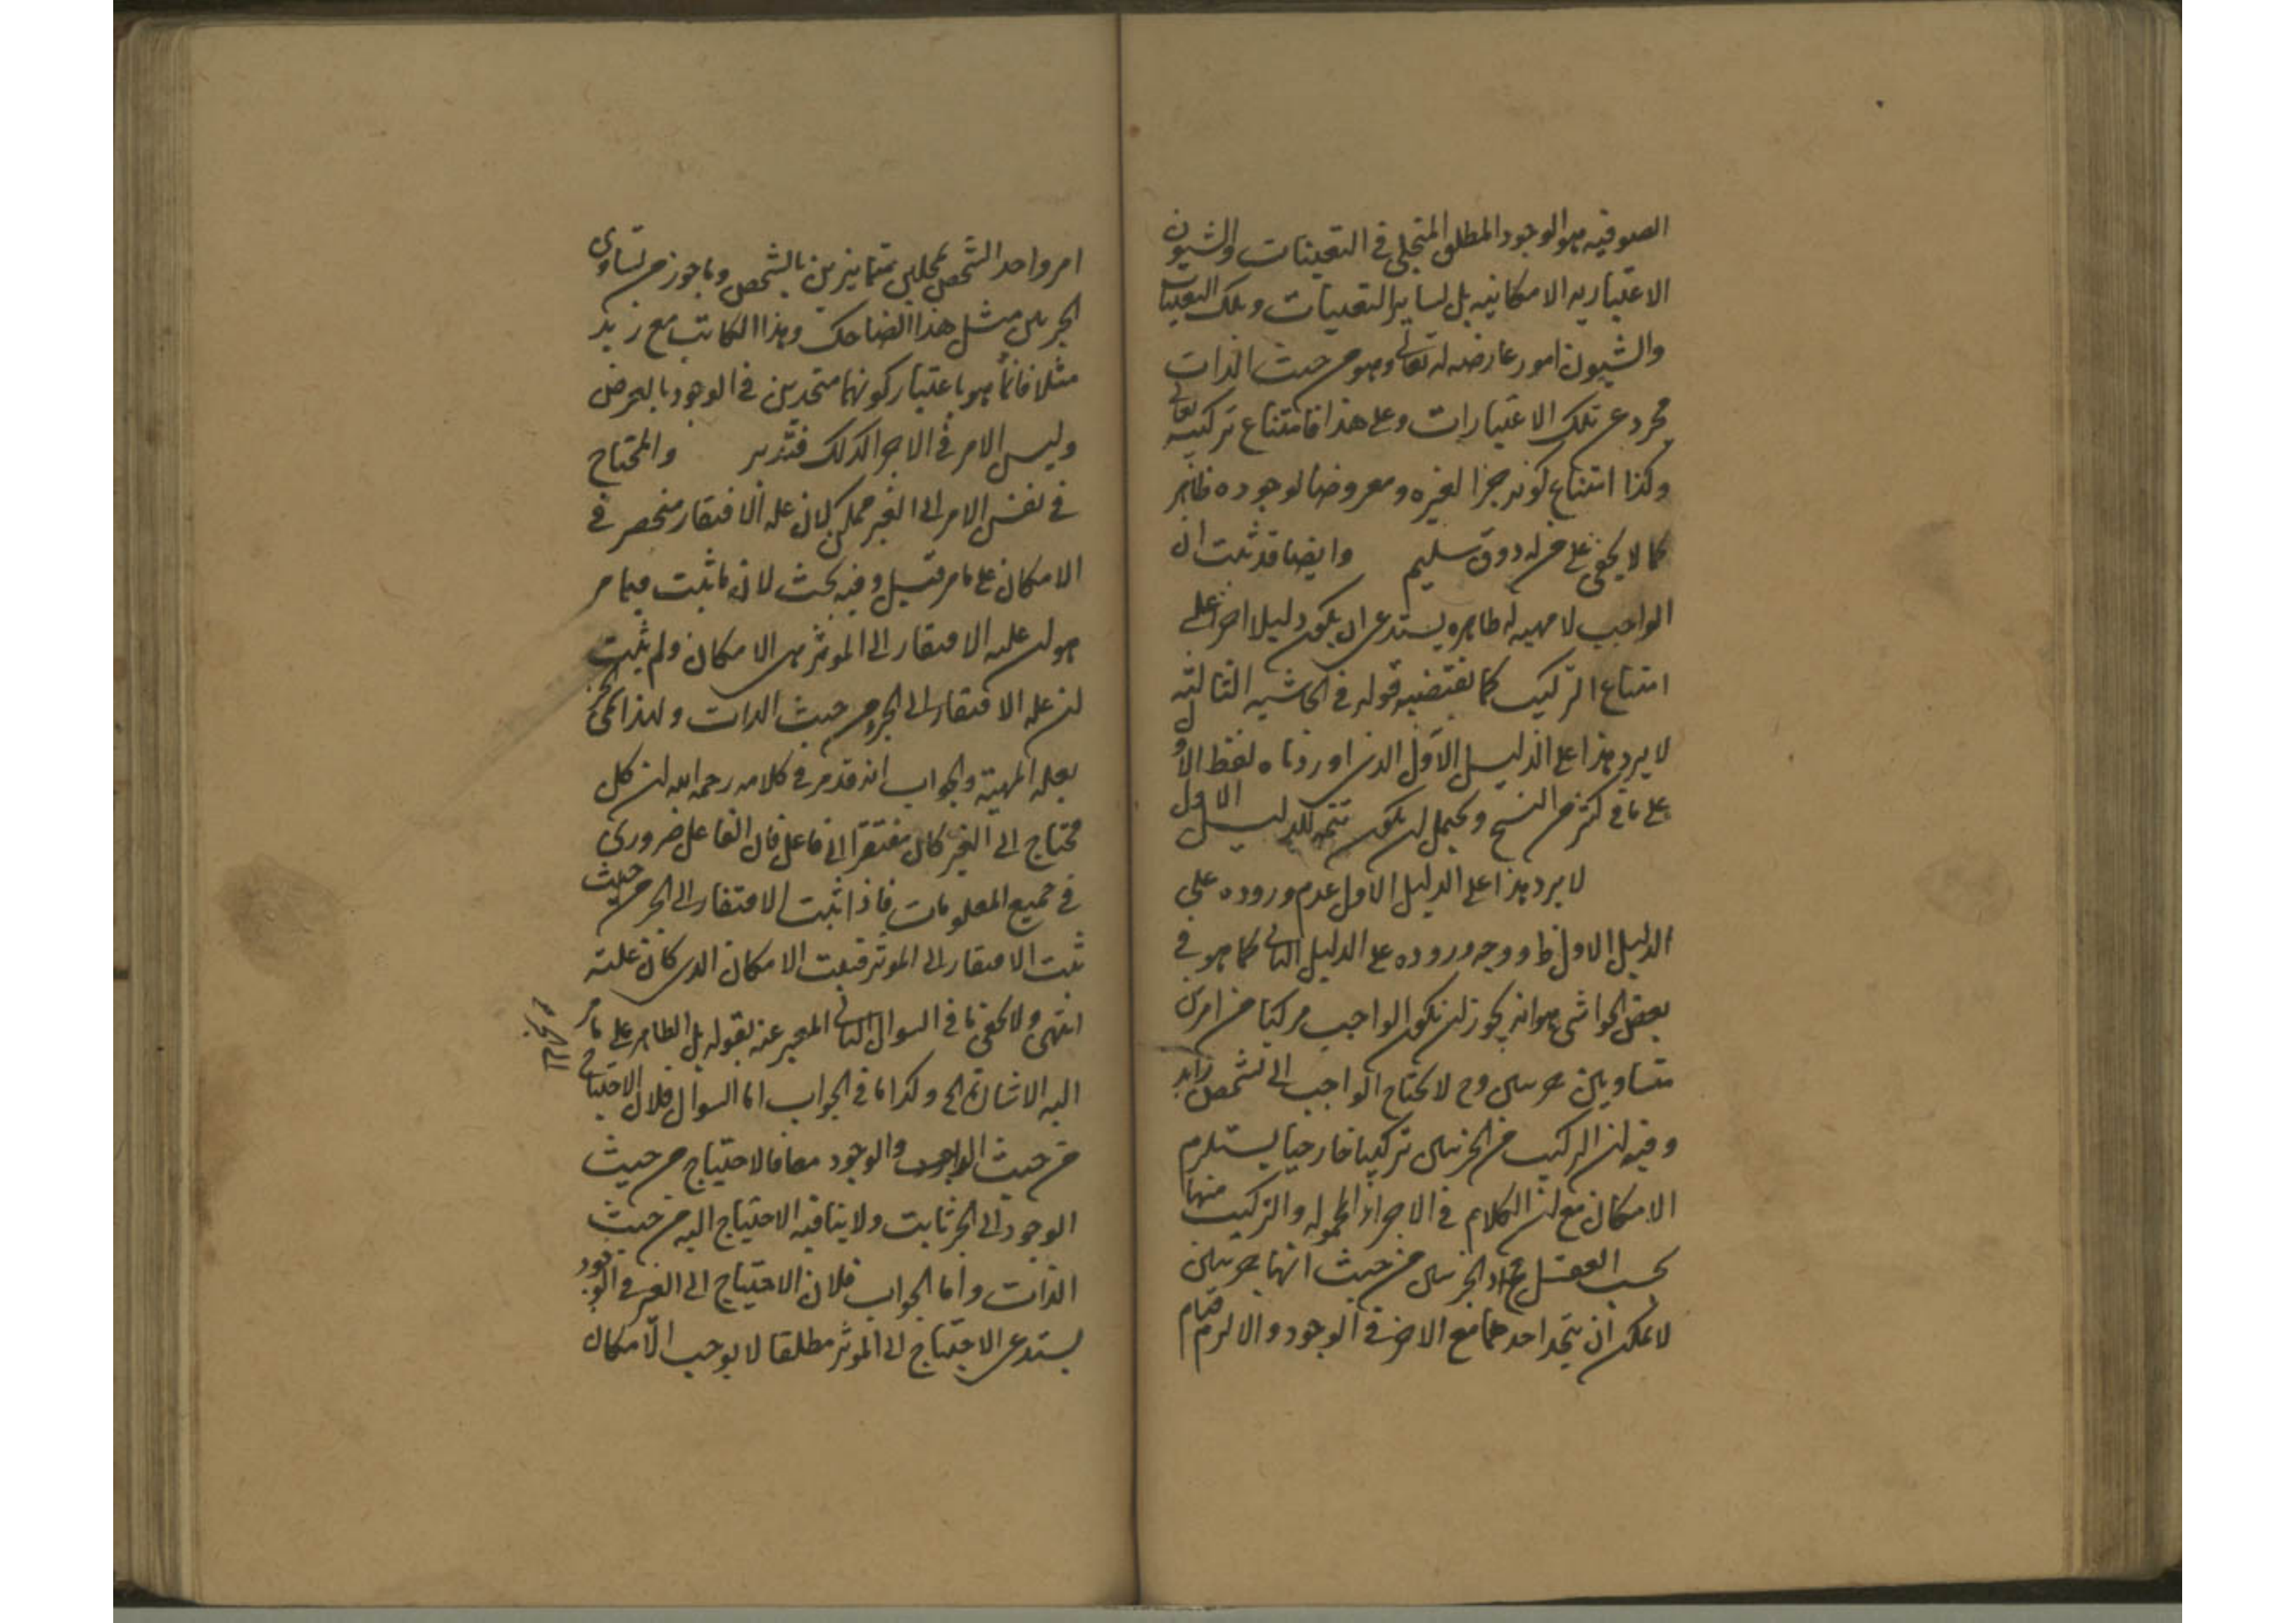 الصوفيه هو الوجود المطلق المتجلي في التعينات والشيون
الاعتباريه الامكانيه بل لساير التعينات وتلك التعينات
والشيون امور عارضه له تعالى وهو من حيث الذات
مجرد عن تلك الاعتبارات وعلى هذا فامتناع تركيبه تعالى
وكذا امتناع كونه جزا لغيره ومعروضا لوجوده ظاهر
كما لا يخفى على من له ذوق سليم وايضا قد ثبت ان
الواجب لا مهيه له ظاهره يستدعي ان يكون دليلا اخر على
امتناع التركيب كما يقتضيه قوله في الحاشيه الثالثه
لا يرد هذا على الدليل الاول الذي اوردناه لفظ الاول
على ما في كثر من النسخ ويحتمل ان يكون تتمه للدليل الاول
لا يرد هذا على الدليل الاول عدم وروده على
الدليل الاول ظ ووجه وروده على الدليل الثاني كما هو في
بعض الحواشي هو انه يجوز ان يكون الواجب مركبا من امرين
متساويين جزيين وح لا يحتاج الواجب الى تشخص زايد
وفيه ان التركيب من الجزيين تركيبا خارجيا يستلزم
الامكان مع ان الكلام في الاجزاء المحموله والتركيب منها
بحسب العقل الجزيين من حيث انهما جزيين
لا يمكن ان يتحد احدهما مع الاخر في الوجود والا لزم قيام
امر واحد الشخص بمحلين متمايزين بالشخص وما جوز من تساوي
الجزيين مثل هذا الضاحك وهذا الكاتب مع زيد
مثلا فانما هو باعتبار كونهما متحدين في الوجود بالعرض
وليس الامر في الاجزا كذلك فتدبر والمحتاج
في نفس الامر الى الغير ممكن لان عله الافتقار منحصر في
الامكان على ما مر قيل وفيه بحث لان ما ثبت فيما مر
هو ان عله الافتقار الى الموثر هي الامكان ولم يثبت
ان عله الافتقار الى الجزء من حيث الذات ولهذا
بعله المهية والجواب انه قد مر في كلامه رحمه الله ان كل
محتاج الى الغير كان مفتقرا الى فاعل فان الفاعل ضروري
في جميع المعلومات فاذا ثبت الافتقار الى الجزء من حيث
ثبت الافتقار الى الموثر فيثبت الامكان الذي كان علته
انتهى ولا يخفى ما في السوال الثاني المعبر عنه بقوله بل الظاهر على ما مر
اليه الاشاره الخ وكذا ما في الجواب اما السوال فلان الاحتياج
من حيث والوجود معا فالاحتياج من حيث
الوجود الى الجزء ثابت ولا ينافيه الاحتياج اليه من حيث
الذات واما الجواب فلان الاحتياج الى الغير في الوجود
يستدعي الاحتياج الى الموثر مطلقا لا يوجب الامكان